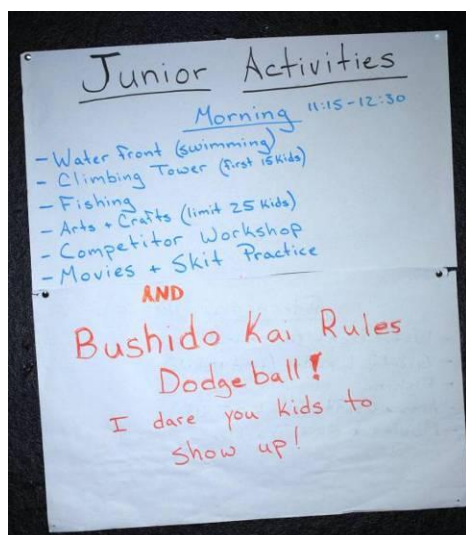 Junior Activities
Morning 11:15-12:30
- Water front (swimming)
- Climbing Tower (first 15 kids)
- Fishing
- Arts + Crafts (limit 25 kids)
- Competitor Workshop
- Movies + Skit Practice
AND
Bushido Kai Rules
Dodgeball!
I dare you kids to
show up!